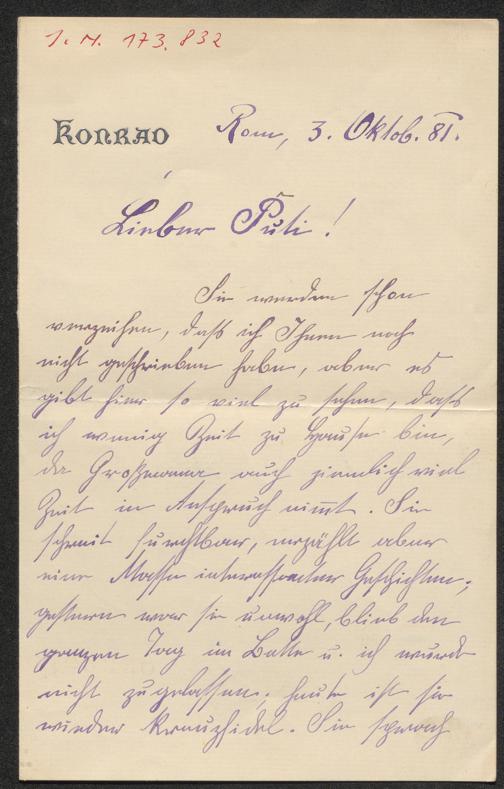 I. N. 173.832
KONRAD
Rom, 3. Oktob. 81.
Lieber Puti!
Sie werden schon
verzeihen, daß ich Ihnen noch
nicht geschrieben habe, aber es
gibt hier so viel zu sehen, daß
ich wenig Zeit zu Hause bin,
da Großmama auch ziemlich viel
Zeit in Anspruch nimmt. Sie
schreit furchtbar, erzählt aber
eine Masse interessanter Geschichten;
gestern war sie unwohl, blieb den
ganzen Tag im Bette u. ich wurde
nicht zugelassen; heute ist sie
wieder kreuzfidel. Sie sprach